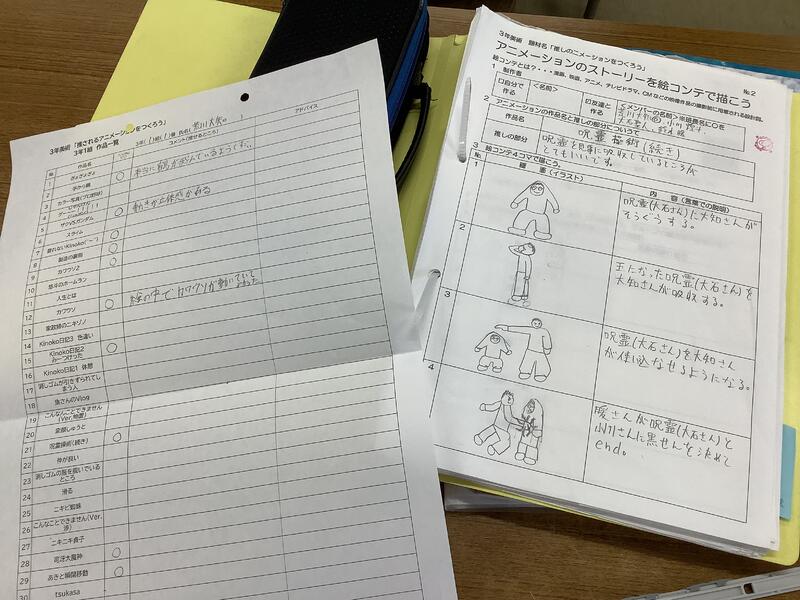 3年美術 「推されるアニメーションをつくろう」
3年1組 作品一覧
№
作品名
コメント(推せるところ)
アドバイス
1
ぎょぎょぎょ
○
2
手かっ網
3
カラー写真(プロ野球)
4
5
ザクVSガンダム
○
動きが立体感がある
6
スライム
○
7
疲れないKinoko(´ー`)
○
8
製造の裏側
○
9
カワウソ2
10
悠斗のホームラン
11
人生とは
12
カワウソ
○
絵の中でカワウソが動いていて
13
家政婦のニキゾノ
14
Kinoko日記3 色違い
15
Kinoko日記2
みーつけった
○
16
Kinoko日記1 休憩
17
消しゴムが引きずられてし
まう人
18
魚さんのVlog
19
こんなんことできません
(Ver.地面)
20
変顔しゅうと
21
呪霊操術(続き)
○
22
仲が良い
23
消しゴムの服を脱いでいる
ところ
24
滑る
25
ニキビ蜘蛛
26
こんなことできません(Ver.
27
ニキニキ貞子
28
司冴大魔神
○
29
あきと瞬間移動
○
30
tsukasa
3年美術 題材名「推しのニメーションをつくろう」
№2
アニメーションのストーリーを絵コンテで描こう
絵コンテとは?・・・漫画、映画、アニメ、テレビドラマ、CMなどの映像作品の撮影前に用意される設計図。
1 制作者
口自分で
作る
<名前>
口友達と
作る
2 アニメーションの作品名と推しの部分について
作品名
呪霊操術(続き)
推しの部分
呪霊を見事に吸収しているところが
とてもいいです。
3 絵コンテ4コマで描こう。
№
画 面(イラスト)
内 容(言葉での説明)
1
呪霊(大石さん)に大知さんが
そうぐうする。
2
玉になった呪霊(大石さん)を
大知さんが吸収する。
3
呪霊(大石さん)を大知さん
が使いこなせるようになる。
4
暖さんが呪霊(大石さん)と
小川さんに黒せんを決めて
end。